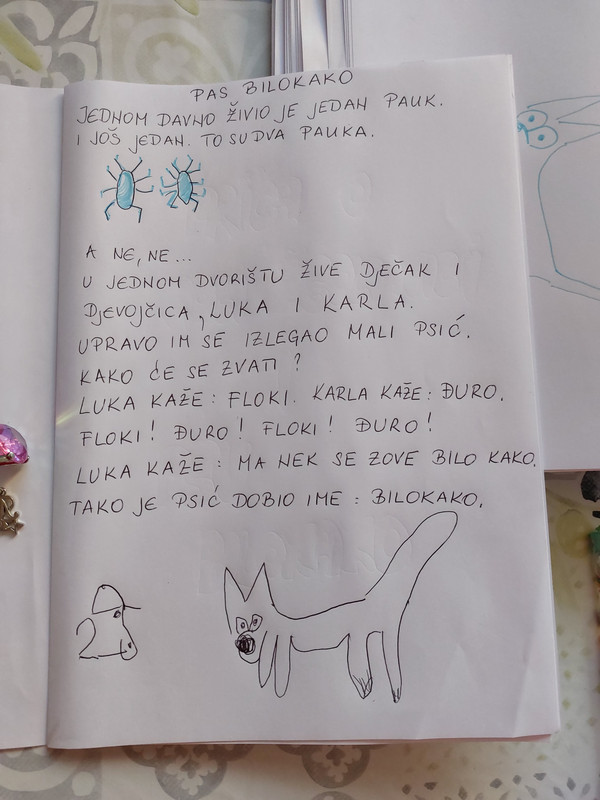 PAS BILOKAKO
JEDNOM DAVNO ŽIVIO JE JEDAN PAUK.
I JOŠ JEDAN. TO SU DVA PAUKA.
A NE, NE...
U JEDNOM DVORIŠTU ŽIVE DJEČAK I
DJEVOJČICA, LUKA I KARLA.
UPRAVO IM SE IZLEGAO MALI PSIĆ.
KAKO ĆE SE ZVATI?
LUKA KAŽE: FLOKI. KARLA KAŽE: ĐURO.
FLOKI! ĐURO! FLOKI! ĐURO!
LUKA KAŽE: MA NEK SE ZOVE BILO KAKO.
TAKO JE PSIĆ DOBIO IME: BILOKAKO.
2